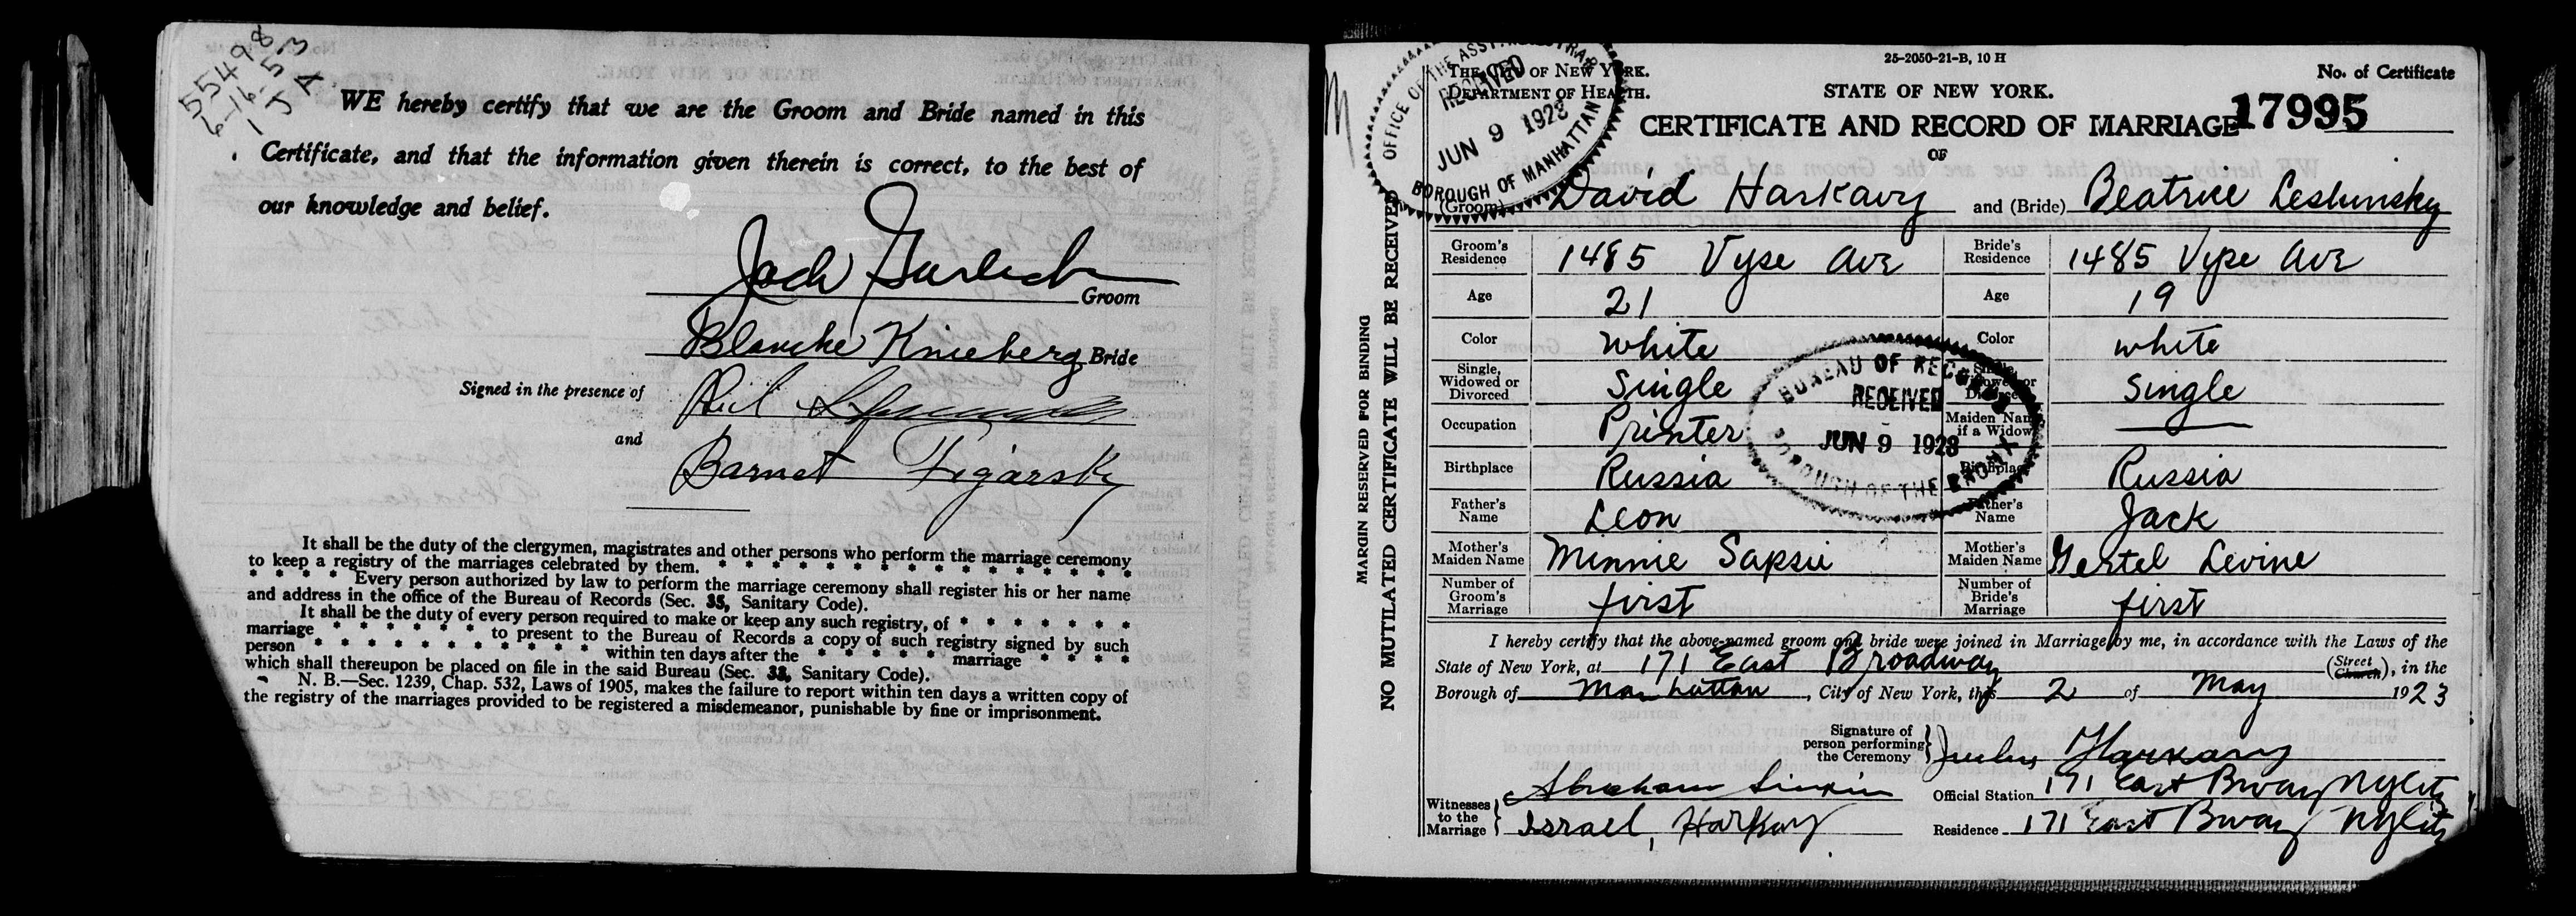 55498
6-16-53
1 J A
WE hereby certify that we are the Groom and Bride named in this
Certificate, and that the information given therein is correct, to the best of
our knowledge and belief.
Jack
Groom
Blanche Knieberg Bride
Signed in the presence of
and
Barnet Figarsky
It shall be the duty of the clergymen, magistrates and other persons who perform the marriage ceremony
to keep a registry of the marriages celebrated by them. * * * * * * * * * * * * * * * *
* * * * * Every person authorized by law to perform the marriage ceremony shall register his or her name
and address in the office of the Bureau of Records (Sec. 35, Sanitary Code).
It shall be the duty of every person required to make or keep any such registry, of * * * * * * *
marriage * * * * * * to present to the Bureau of Records a copy of such registry signed by such
person * * * * * * * * * * * within ten days after the * * * * * marriage * * * *
which shall thereupon be placed on file in the said Bureau (Sec. 33, Sanitary Code).
N. B.—Sec. 1239, Chap. 532, Laws of 1905, makes the failure to report within ten days a written copy of
the registry of the marriages provided to be registered a misdemeanor, punishable by fine or imprisonment.
25-2050-21-B, 10 H
OFFICE OF THE ASS'T REGISTRAR
RECEIVED
JUN 9 1923
BOROUGH OF MANHATTAN
THE CITY OF NEW YORK.
DEPARTMENT OF HEALTH.
STATE OF NEW YORK.
No. of Certificate
17995
CERTIFICATE AND RECORD OF MARRIAGE
OF
(Groom) David Harkavy and (Bride) Beatrice Leshinsky
MARGIN RESERVED FOR BINDING
NO MUTILATED CERTIFICATE WILL BE RECEIVED
Groom's Residence 1485 Vyse Ave Bride's Residence 1485 Vyse Ave
Age 21 Age 19
Color White Color white
Single, Widowed or Divorced Single Single, Widowed or Divorced Single
Occupation Printer Maiden Name if a Widow
BUREAU OF RECORDS
RECEIVED
JUN 9 1923
BOROUGH OF THE BRONX
Birthplace Russia Birthplace Russia
Father's Name Leon Father's Name Jack
Mother's Maiden Name Minnie Sapsie Mother's Maiden Name Gertel Levine
Number of Groom's Marriage first Number of Bride's Marriage first
I hereby certify that the above-named groom and bride were joined in Marriage by me, in accordance with the Laws of the
State of New York, at 171 East Broadway (Street Church), in the
Borough of Manhattan, City of New York, this 2 of May 1923
Signature of person performing the Ceremony Julius Harkavy
Witnesses to the Marriage Abraham
Official Station 171 East Bway NYCity
Israel Harkavy
Residence 171 East Bway NYCity